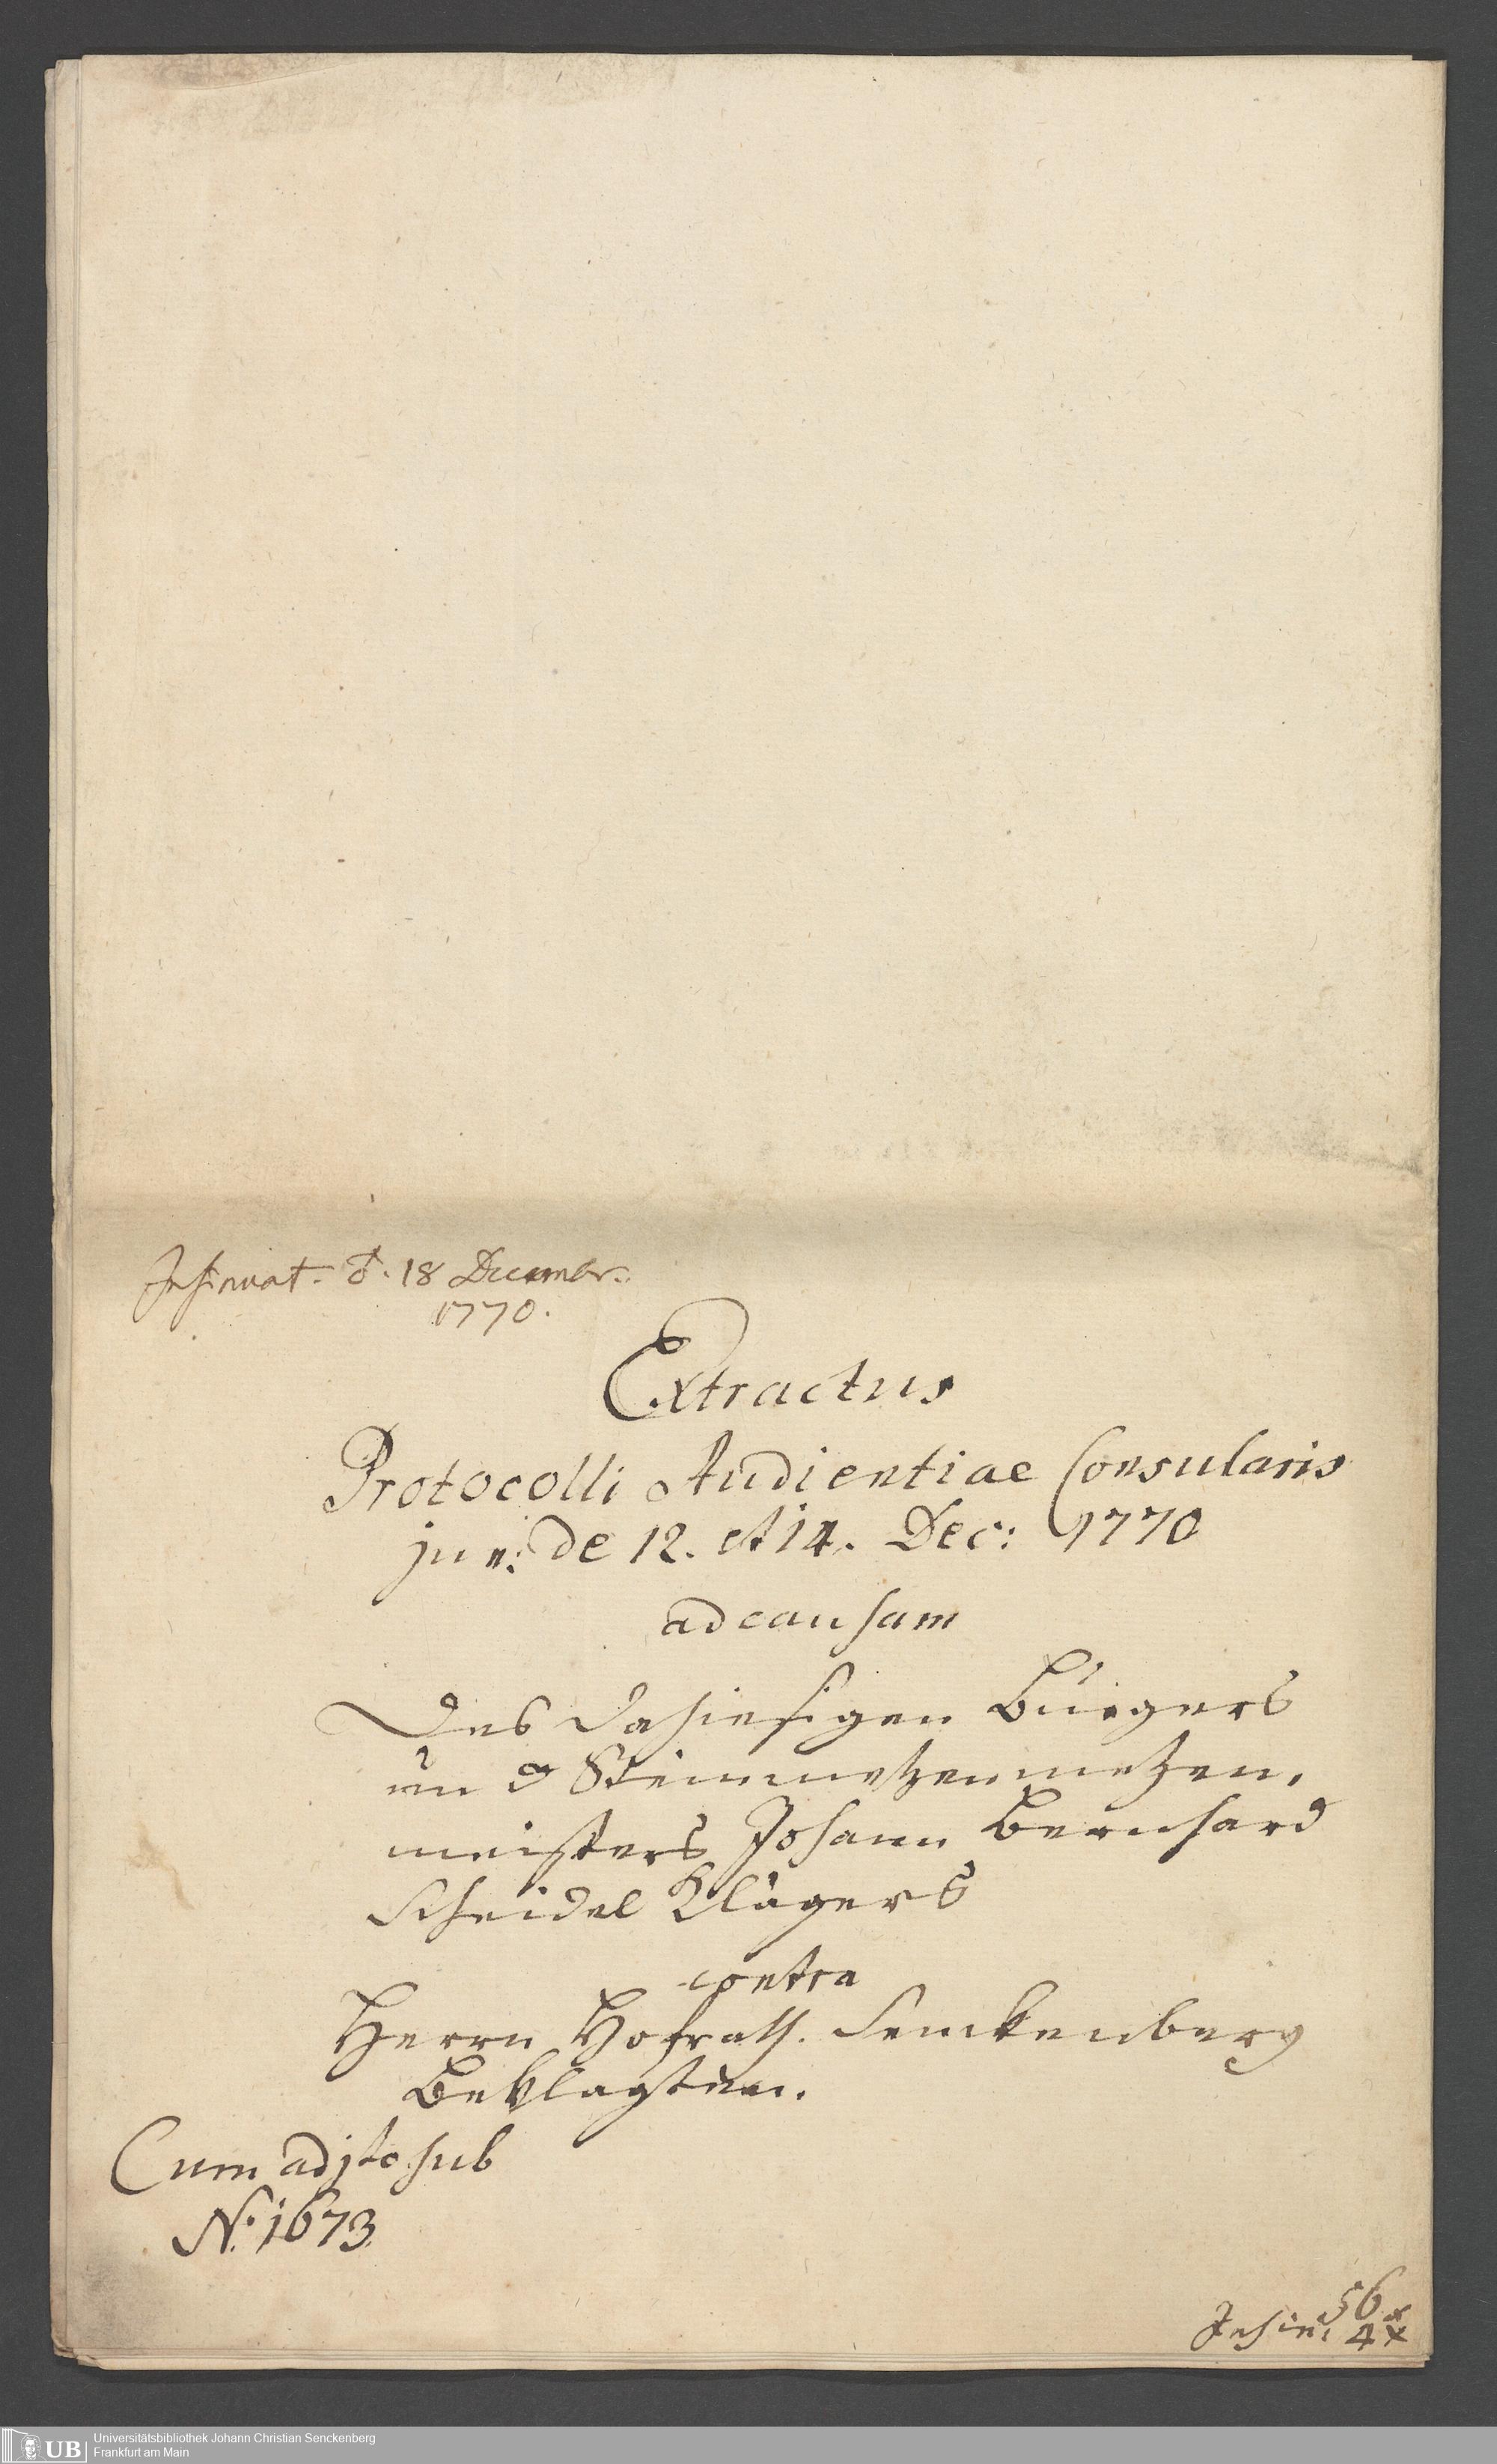 Insinuat. d. 18 Decemer.
1770.
Extractus
Protocolli Audientiae Consularis
jun: de 12. et 14. Dec: 1770
ad causam
Des dahiesigen Bürgers
und Steinmetzenmetzen,
meisters Johann Bernhard
Scheidel Klägers
contra
Herrn Hofrath. Senckenberg
Beklagten.
Cum adjto sub
N. 1673.
56 x
Insin: 4 x
UB
Universitätsbibliothek Johann Christian Senckenberg
Frankfurt am Main